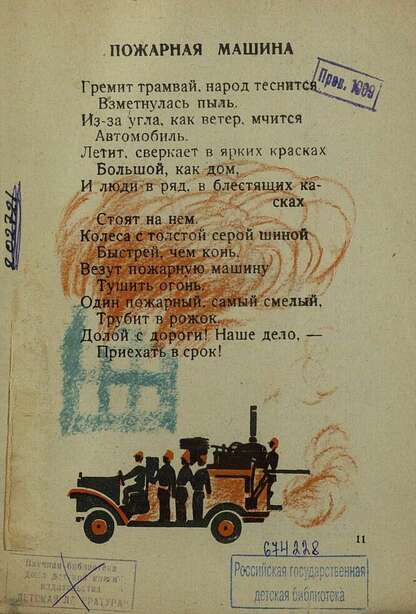 ПОЖАРНАЯ МАШИНА
Пров. 1969
Гремит трамвай, народ теснится
Взметнулась пыль.
Из-за угла, как ветер, мчится
Автомобиль.
Летит, сверкает в ярких красках
Большой, как дом,
И люди в ряд, в блестящих ка-
сках
Стоят на нем.
Колеса с толстой серой шиной
Быстрей, чем конь,
Везут пожарную машину
Тушить огонь.
Один пожарный, самый смелый,
Трубит в рожок.
Долой с дороги! Наше дело, —
Приехать в срок!
11
674228
Российская государственная
детская библиотека
Научная библиотека
Дома детской книги
издательства
"ДЕТСКАЯ ЛИТЕРАТУРА"